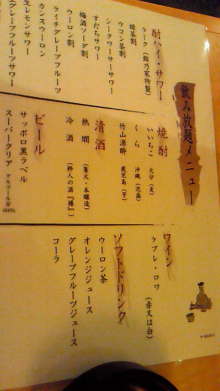 飲み放題メニュー
酎ハイ・サワー
緑茶割
ウコン茶割
シークワーサーサワー
すだちサワー
梅酒ソーダ割
ウーロン割
ライム
グレープフルーツ
カシスウーロン
生レモンサワー
生グレープフルーツサワー
焼酎
いいちこ 大分(麦)
くら 沖縄(泡盛)
竹山源酔 鹿児島(芋)
清酒
熱燗
冷酒
ビール
サッポロ黒ラベル
スーパークリア
ワイン
ラブレ・ロワ
(赤又は白)
ソフトドリンク
ウーロン茶
オレンジジュース
グレープフルーツジュース
コーラ